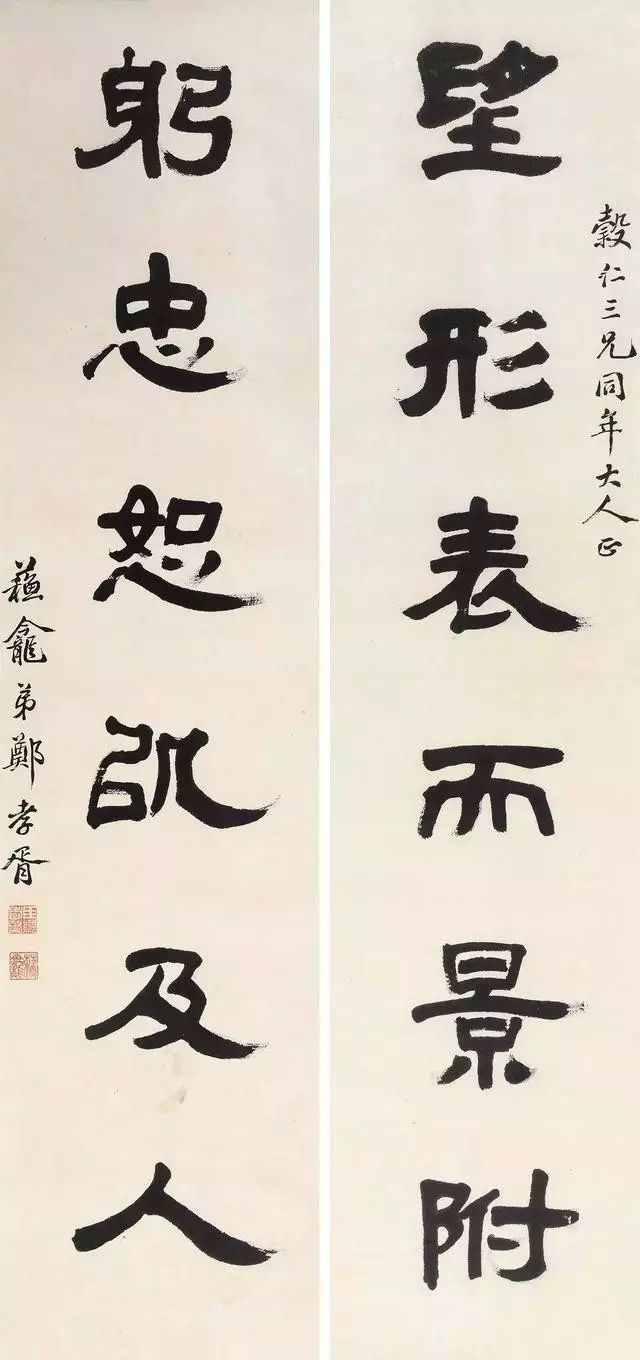 穀仁三兄同年大人正
望形表而景附
躬忠恕以及人
蘓龕弟鄭孝胥